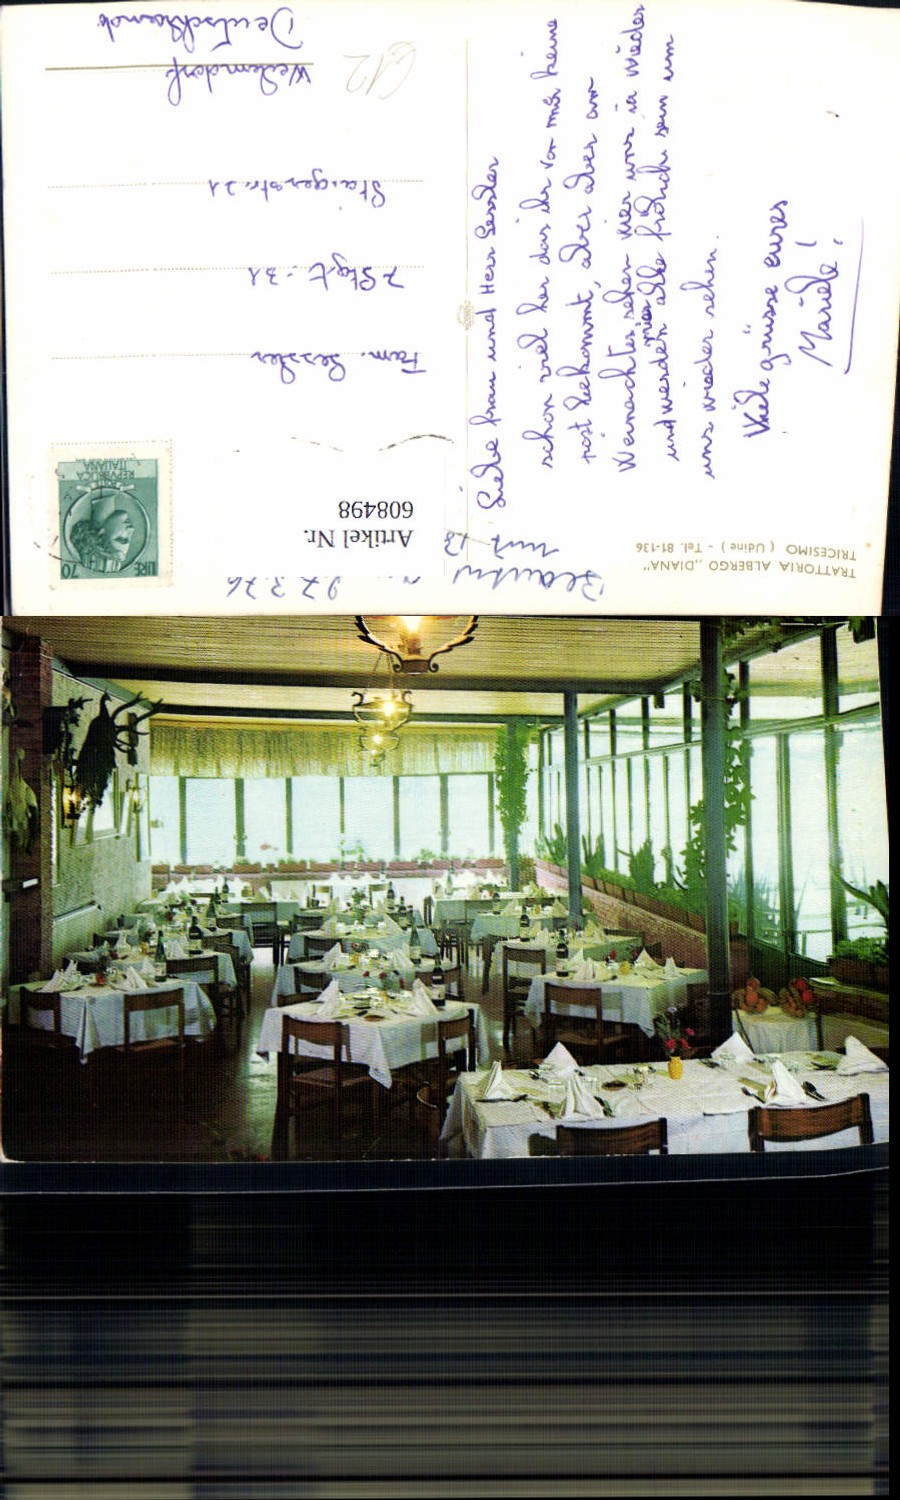 TRATTORIA ALBERGO „DIANA"
TRICESIMO ( Udine ) - Tel. 81-136
Artikel Nr.
608498
LIRE 70
REPVBBLICA
ITALIANA
Liebe frau und Herr Sessler
schon viel her das ihr von mir keine
post bekommt, aber aber am
Weinachten sehen wier uns ja wieder
und werden wier alle frölich sein um
uns wieder sehen.
Viele grüsse eures
Mariele!
Fam. Sessler
7 Stgt-31
Staigerstr. 21
Weilemdorf
Deutschland
612